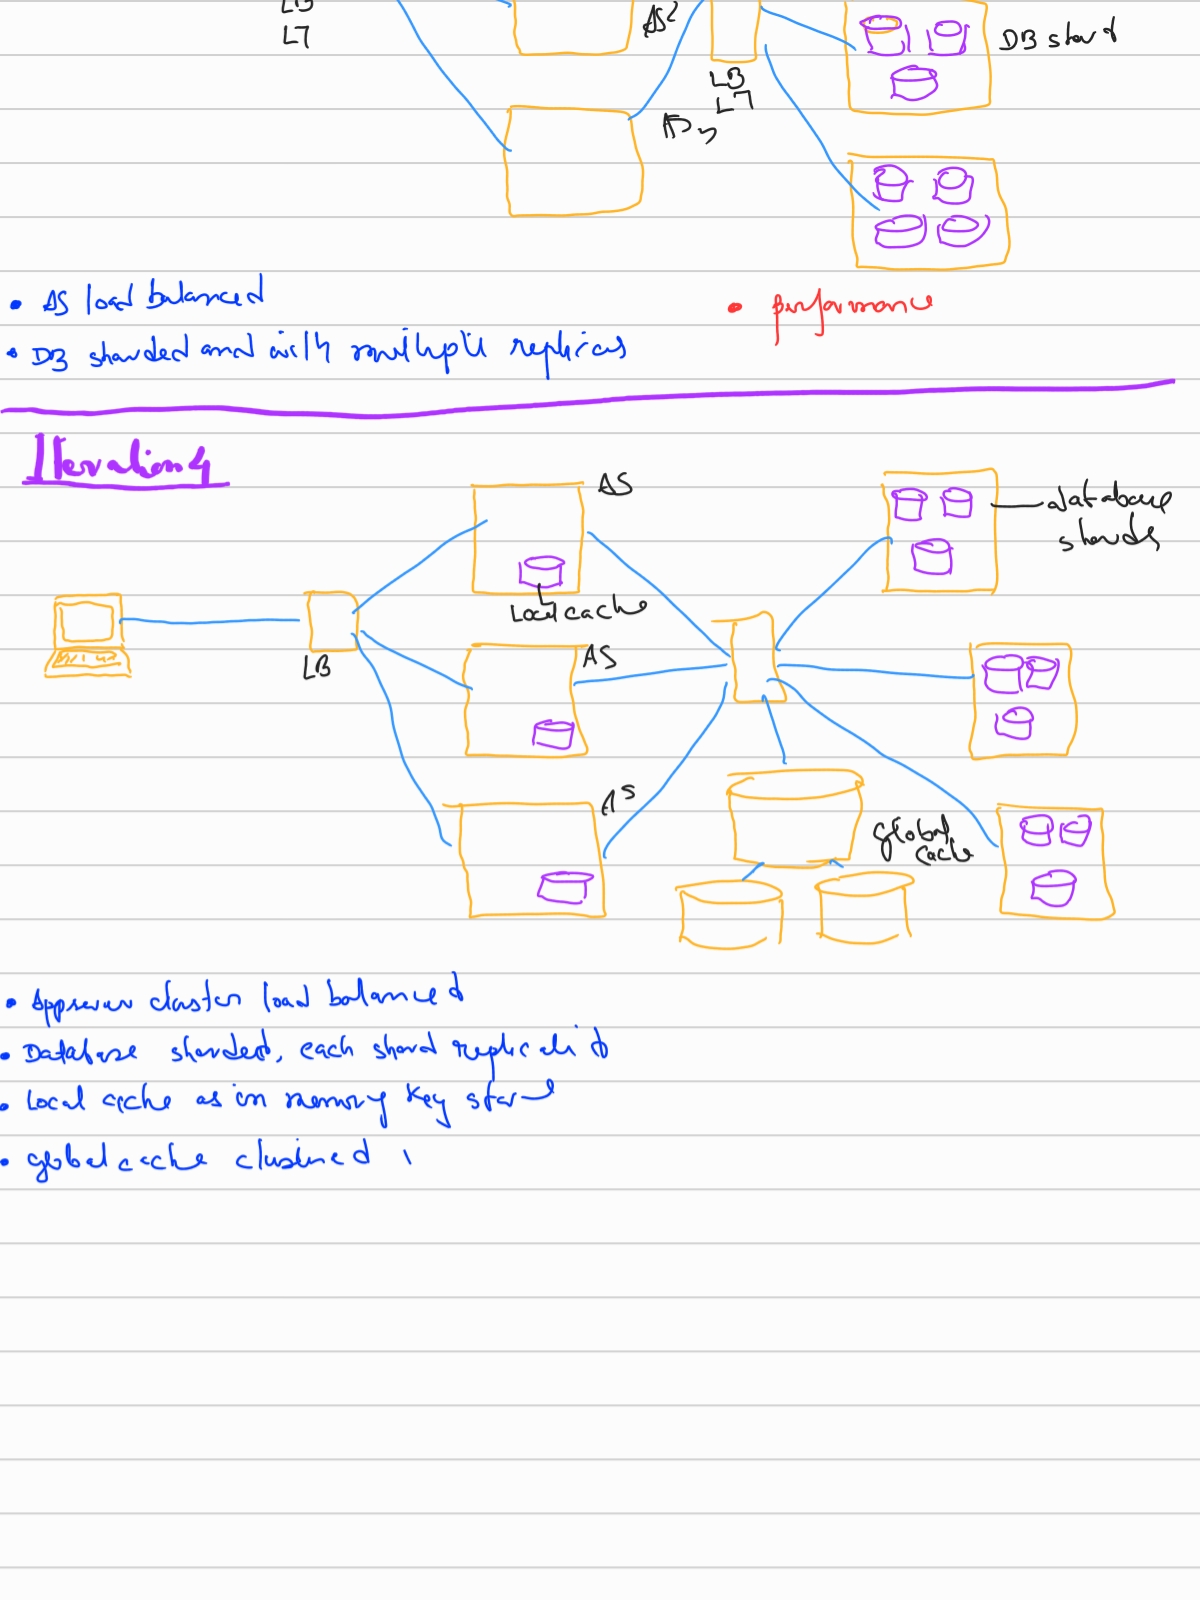 LB
L7
AS2
LB
L7
DB shard
AS3
• AS load balanced
• DB sharded and with multiple replicas
• performance
Iteration 4
AS
local cache
LB
AS
AS
database
shards
global
cache
• Appserver cluster load balanced
• Database sharded, each shard replicated
• Local cache as in memory key store
• global cache clustered